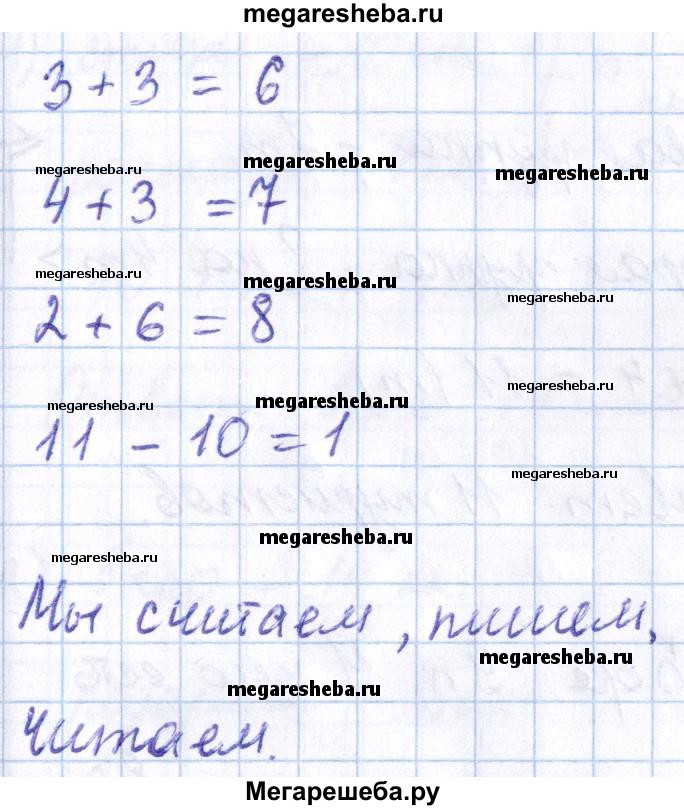 megaresheba.ru
3 + 3 = 6
megaresheba.ru
megaresheba.ru
megaresheba.ru
4 + 3 = 7
megaresheba.ru
megaresheba.ru
megaresheba.ru
2 + 6 = 8
megaresheba.ru
megaresheba.ru
megaresheba.ru
11 - 10 = 1
megaresheba.ru
megaresheba.ru
megaresheba.ru
Мы считаем, пишем,
megaresheba.ru
megaresheba.ru
читаем.
Мегарешеба.ру